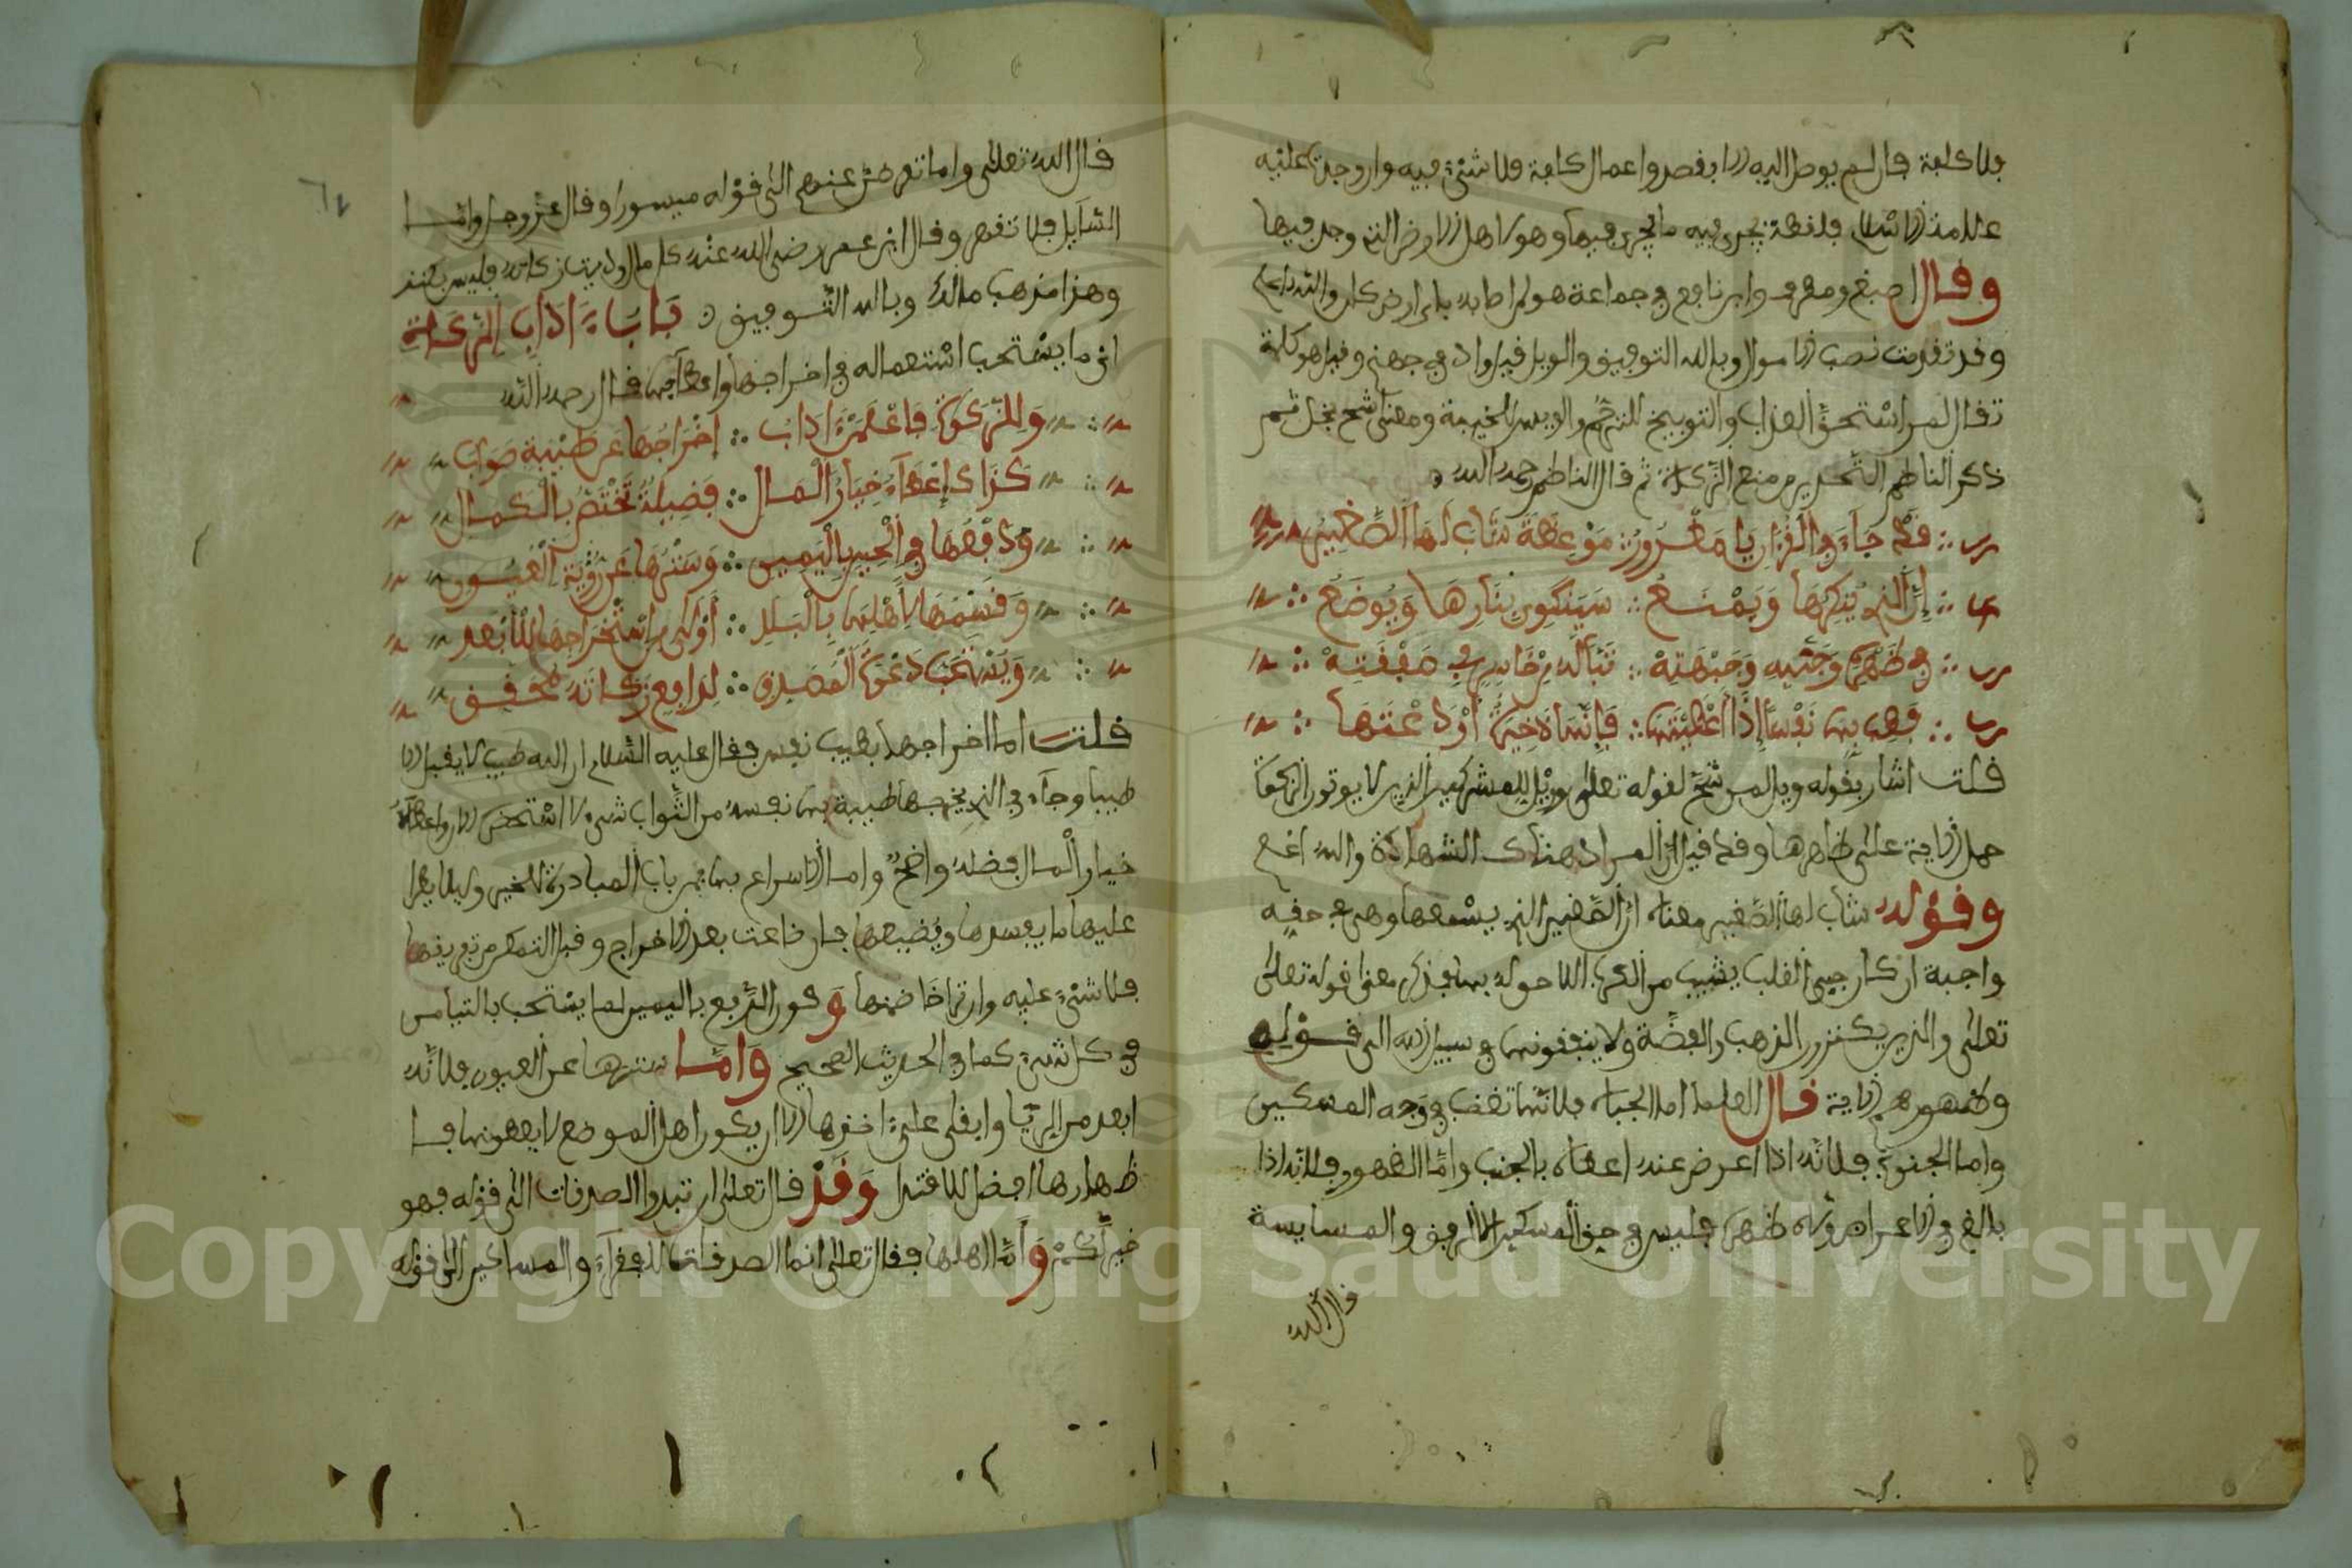 بلا كلفة فان لم يوصل اليه الا بنفقة واعمال كلفة فلا شيء فيه وان وجد عليه
علامة الاسلام فلقطة يجري فيه ما يجري فيها وهو لاهل الارض التي وجد فيها
وقال اصبغ ومطرف وابن نافع في جماعة هو لمن اصابه باي ارض كان والله اعلم
وقد تقدمت نصب الاموال وبالله التوفيق والويل قيل واد في جهنم وقيل هو كلمة
تقال لمن استحق العذاب والتوبيخ للترحم والويس للخيبة ومعنى شح بخل ثم
ذكر الناظم التحذير من منع الزكاة ثم قال الناظم رحمه الله
قد جاء في القرآن يا مغرور مَوْعِظة شاب لها الصغير
إن الذي يكنزها ويمنع سينكوي بنارها ويوضع
في ظهره وجنبه وجبهته تبا له من خاسر في صفقته
فطب بها نفسا إذا أعطيتها فإنها ذخيرة أودعتها
قلت اشار بقوله ويل لمن شح لقوله تعلى وويل للمشركين الذين لا يوتون الزكوة
حمل الاية على ظاهرها وقد قيل ان المراد هناك الشهادة والله اعلم
وقوله شاب لها الصغير معناه ان الصغير الذي يسمعها وهي في حقه
واجبة ان كان حيي القلب يشيب من الاحوال بها فذكر معنى قوله تعلى
تعلى والذين يكنزون الذهب والفضة ولا ينفقونها في سبيل الله الى قوله
وظهورهم الاية قال العلما اما الجباه فلانها تقطب في وجه المسكين
واما الجنوب فلانه اذا اعرض عنه اعطاه بالجنب واما الظهور فلانه اذا
بالغ في الاعراض ولاه ظهره فليس في حق المسكين الا الرفق والمسايسة
قال الله
قال الله تعلى واما تعرضن عنهم الى قوله ميسورا وقال عز وجل واما
السايل فلا تنهر وقال ابن عمر رضي الله عنه كل مال اديت زكاته فليس بكنز
وهذا مذهب مالك وبالله التوفيق باب ءاداب الزكاة
اي ما يستحب استعماله في اخراجها واعطآيها قال رحمه الله
وللزكوة فاعلمن ءاداب إخراجها عن طيبة صواب
كذاك إعطآء خيار المال فضيلة تختص بالكمال
ودفعها في الحين باليمين وسترها عن رؤية العيون
وقسمها لأهلها بالبلد أولى من استخراجها للأبعد
ويستحب دعوة المصدق لدافع زكاته محقق
قلت اما اخراجها بطيب نفس فقال عليه السلام ان الله طيب لا يقبل الا
طيبا وجآء في الذي يخرجها طيبة بها نفسه من الثواب شيء لا استحضره الان واعطآء
خيار المال فضله واضح واما الاسراع بها فمن باب المبادرة للخير وليلا يطرا
عليها ما يفسدها ويضيعها فان ضاعت بعد الاخراج وقبل التمكن من تفريقها
فلا شيء عليه وان تراخا ضمنها وكون الدفع باليمين لما يستحب بالتيامن
في كل شيء كما في الحديث الصحيح واما سترها عن العيون فلانه
ابعد من الريا وابقى على اخذها الا ان يكون اهل الموضع لا يعطونها فا
ظهارها افضل للاقتدا وقد قال تعلى ان تبدوا الصدقات الى قوله فهو
خير لكم واما اهلها فقال تعلى انما الصدقات للفقرآء والمساكين الى قوله
Copyright © King Saud University